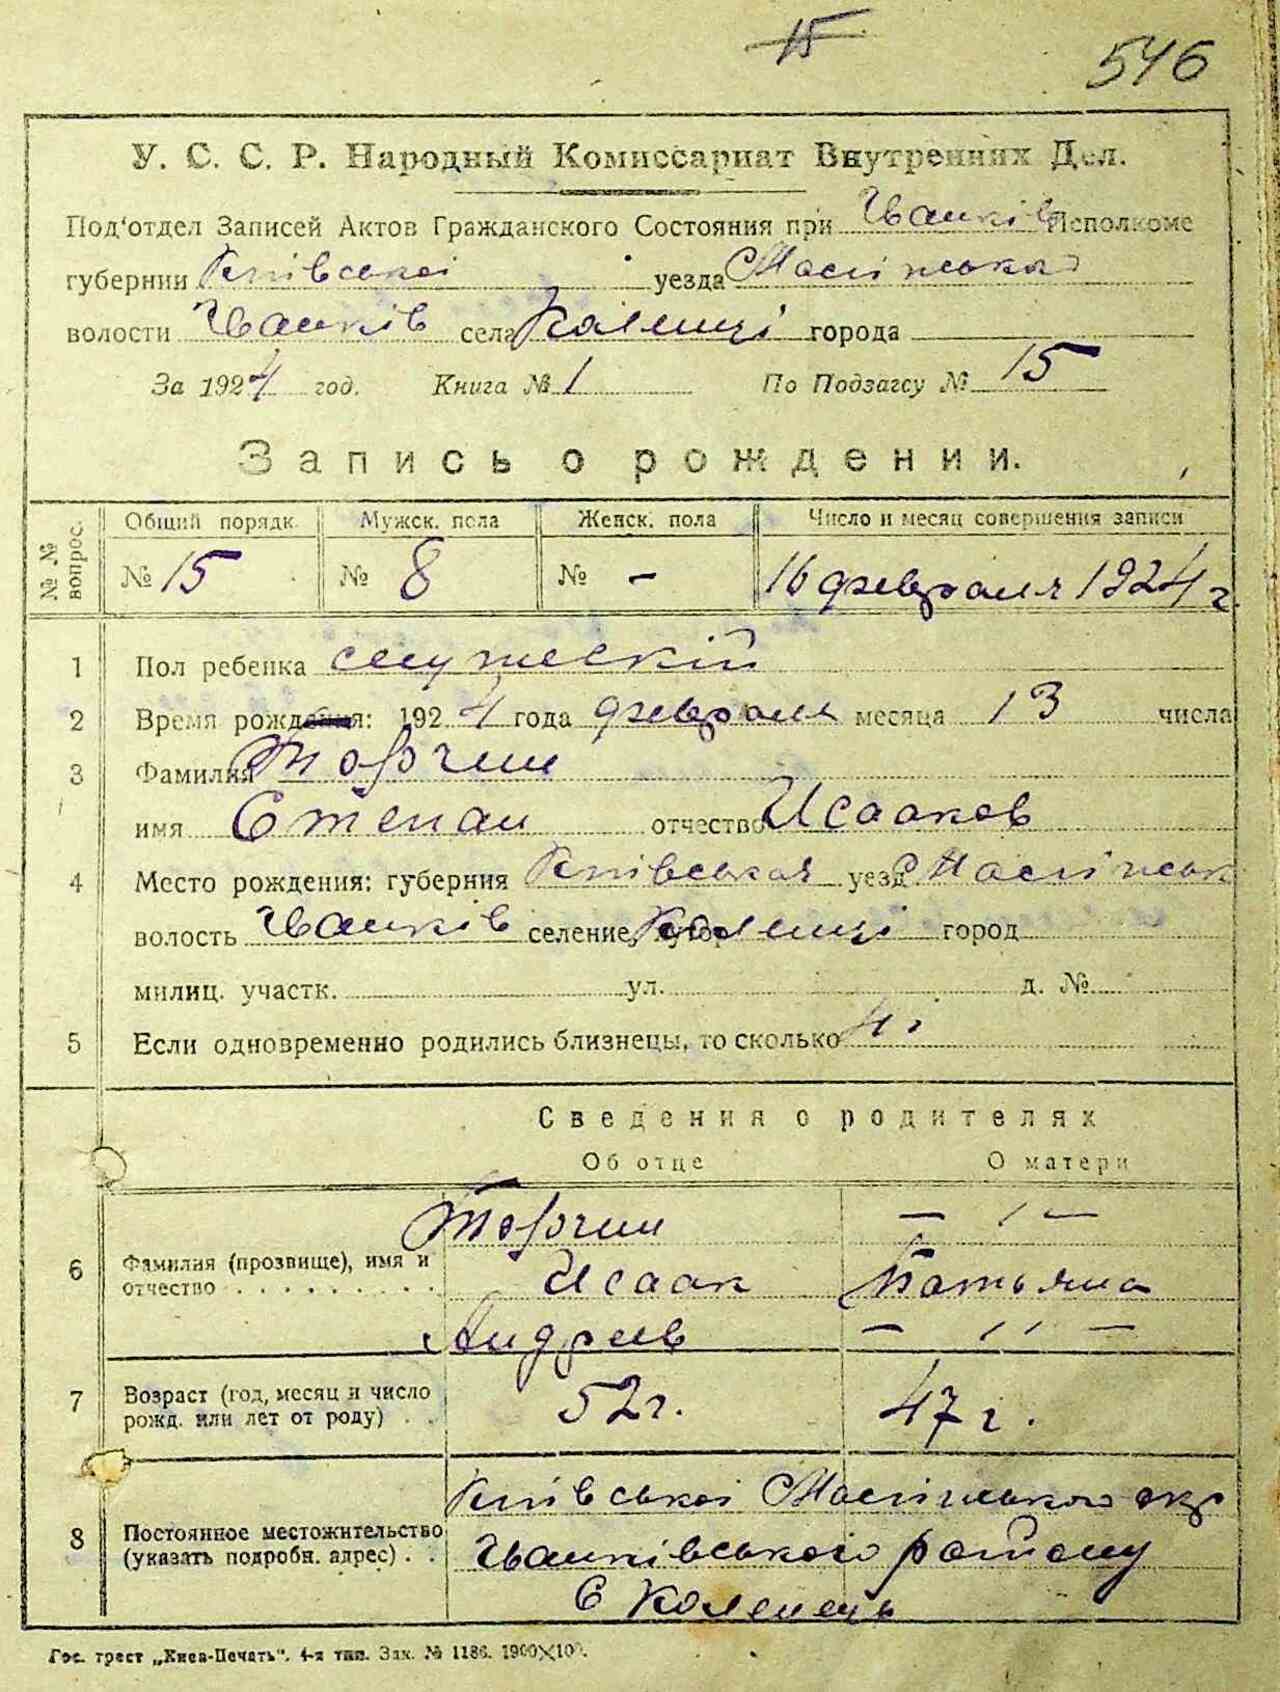 15
546
У. С. С. Р. Народный Комиссариат Внутренних Дел.
Под'отдел Записей Актов Гражданского Состояния при Іванків Исполкоме
губернии Київської уезда Малинського
волости Іванків села Каленці города
За 1924 год. Книга № 1 По Подзагсу № 15
Запись о рождении.
№ № вопрос. Общий порядк. Мужск. пола Женск. пола Число и месяц совершения записи
№ 15 № 8 № - 16 февраля 1924 г.
1 Пол ребенка мужескій
2 Время рождения: 1924 года февраля месяца 13 числа
3 Фамилия Торчин
имя Степан отчество Исааков
4 Место рождения: губерния Київськая уезд Малинськ
волость Іванків селение, хутор Каленці город
милиц. участк. ул. д. №
5 Если одновременно родились близнецы, то сколько
Сведения о родителях
Об отце О матери
Торчин — ' —
6 Фамилия (прозвище), имя и
отчество . . . . . . . . . Исаак Татьяна
Андреев — '' —
7 Возраст (год, месяц и число
рожд. или лет от роду) . . 52 г. 47 г.
Київської Малинського окр
8 Постоянное местожительство
(указать подробн. адрес) . . Іванківського району
с Каленець
Гос. трест „Киев-Печать". 4-я тип. Зак. № 1186. 1900×100.